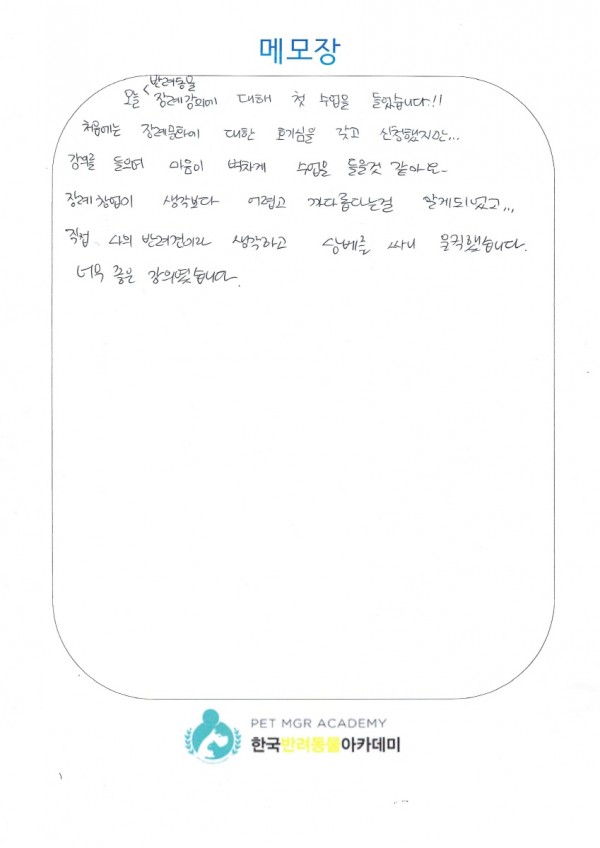 메모장
반려동물
오늘 장례강의에 대해 첫 수업을 들었습니다!!
처음에는 장례문화에 대한 호기심을 갖고 신청했지만...
강의를 들으며 마음이 벅차게 수업을 들을것 같아요~
장례 창업이 생각보다 어렵고 까다롭다는걸 알게되었고...
직접 나의 반려견이라 생각하고 상베를 싸니 울컥했습니다.
너무 좋은 강의였습니다.
PET MGR ACADEMY
한국반려동물아카데미